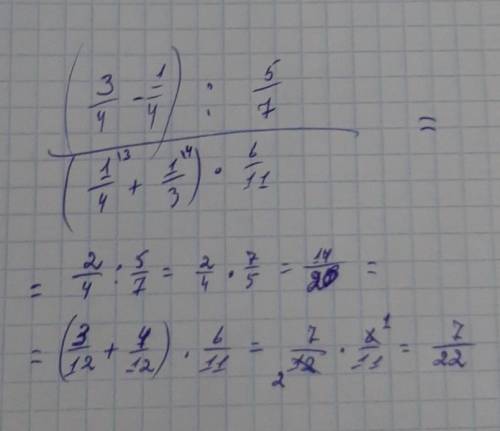 (3/4 - 1/4) : 5/7
(1/4 ¹³ + 1/3 ¹⁴) · 6/11 =
= 2/4 : 5/7 = 2/4 · 7/5 = 14/20 =
= (3/12 + 4/12) · 6/11 = 7/12 2 · 6/11 1 = 7/22